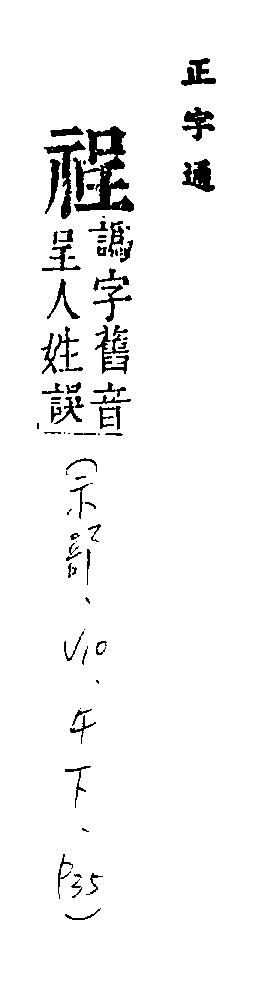 正字通
䄇
譌字舊音
呈人姓誤
(示部、V10、午下、P35)